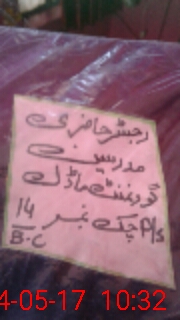 رجسٹر حاضری
مدرسین
گورنمنٹ ماڈل
P/S چک نمبر 14
B.C
4-05-17 10:32